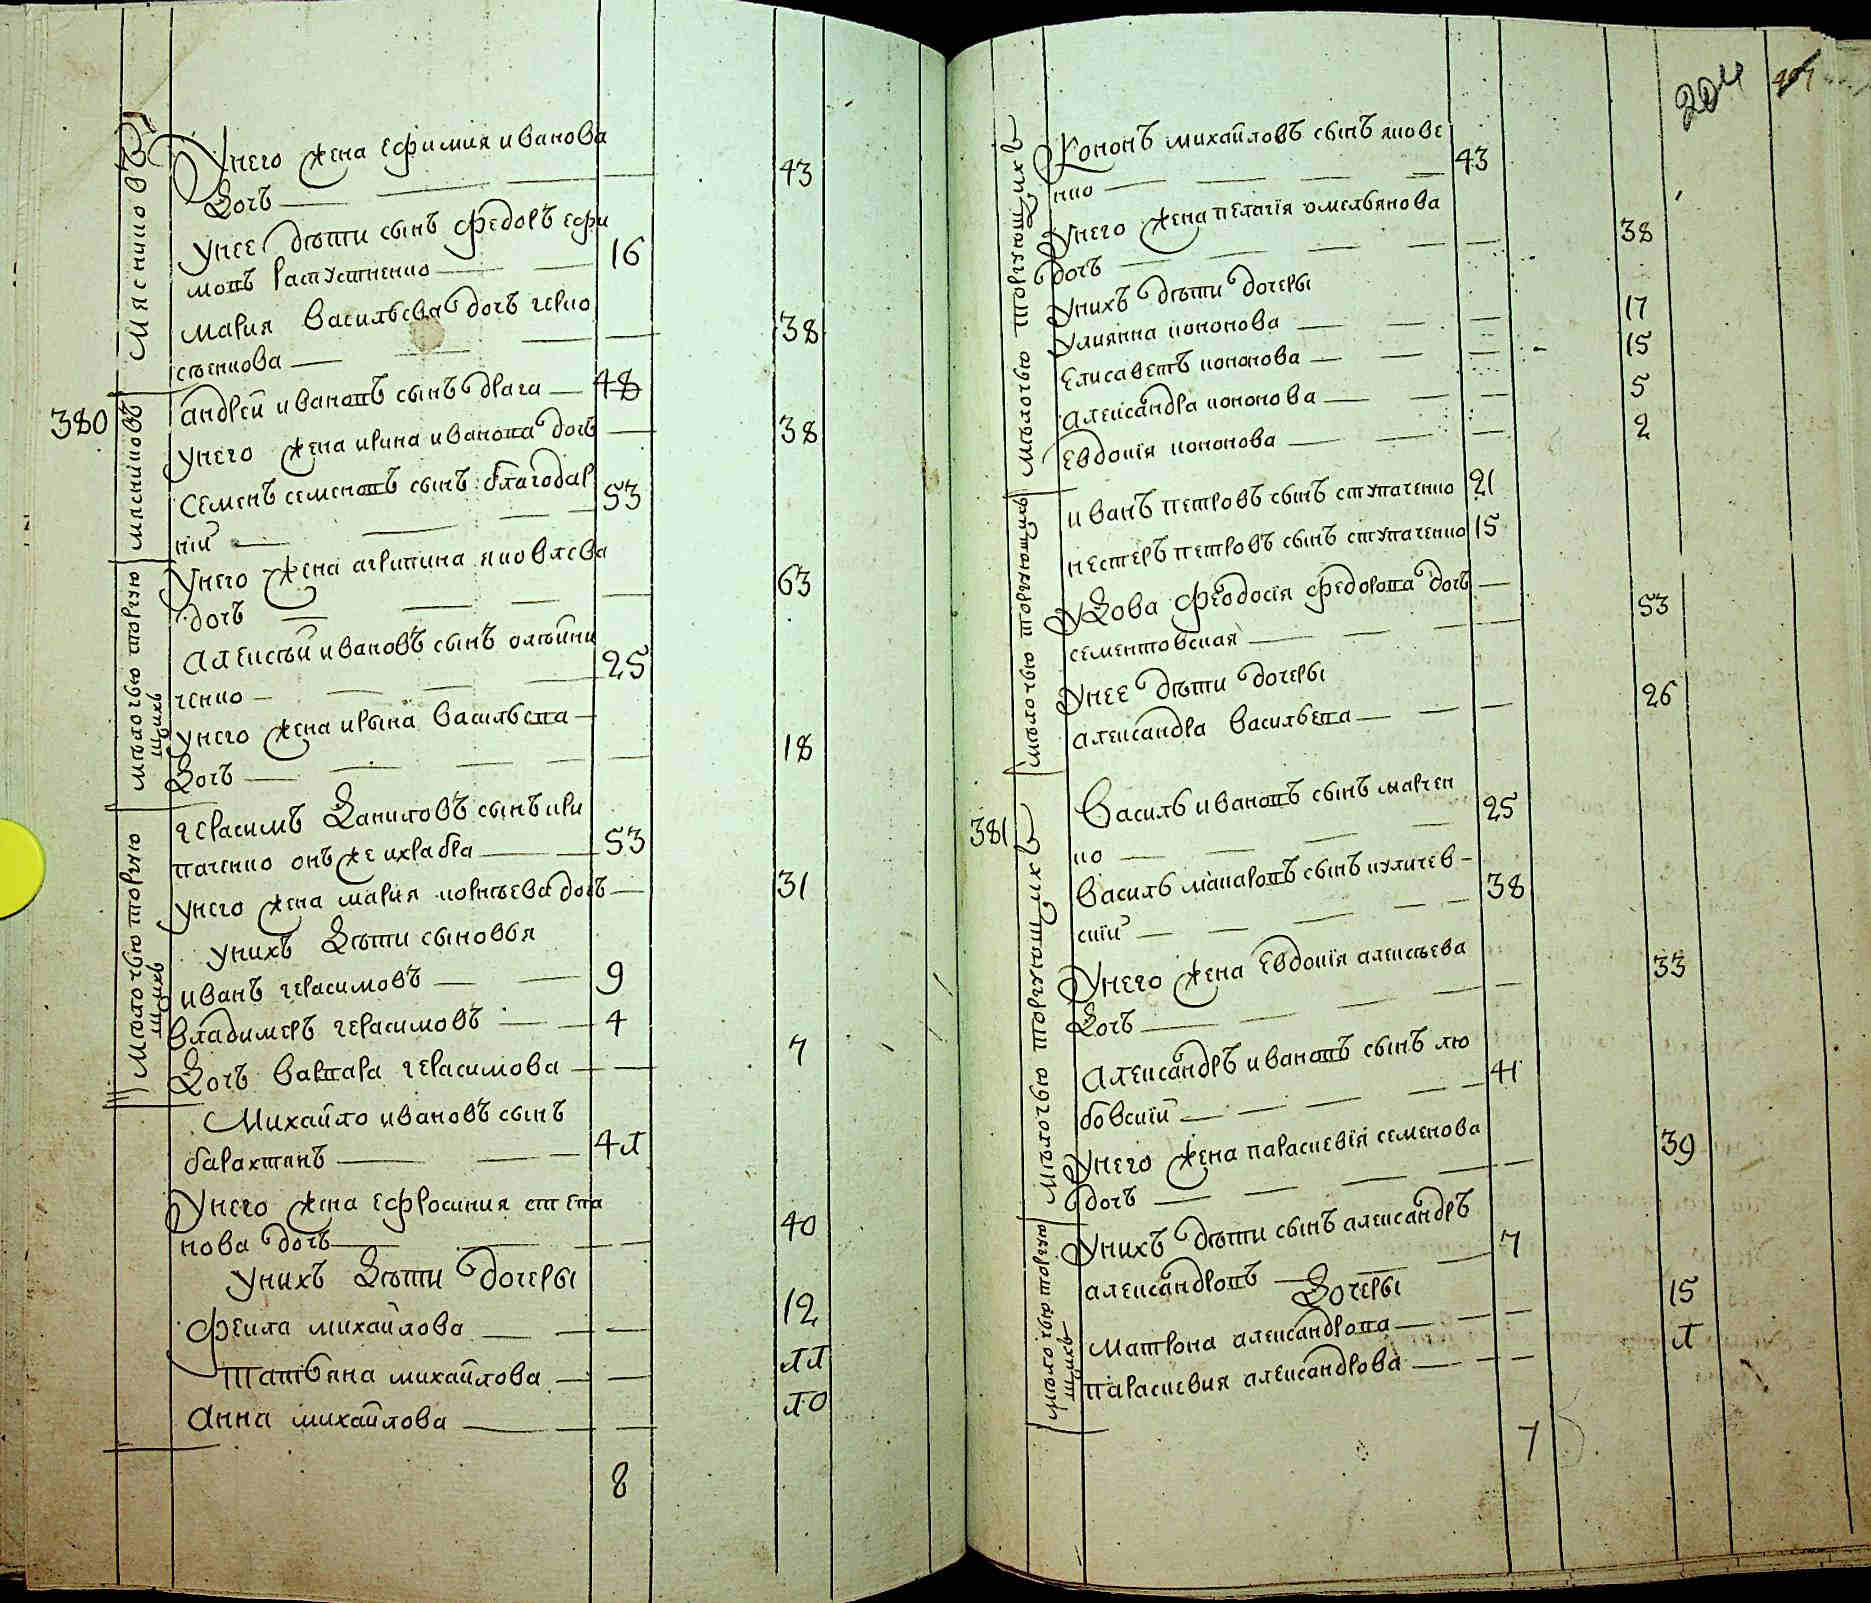 Мяснико въ
Унего жена Ефимия иванова
дочь 43
Унее дѣти сынъ Федоръ ефи
мовъ Растустненко 16
Мария Васильева дочь черно
стѣенкова 38
380
мясниковъ
андрей ивановъ сынъ драги 48
Унего жена ирина иванова дочъ 38
Семенъ семеновъ сынъ благодар
ній 53
мѣлочью торгую
щихъ
Унего жена агрипина яковлева
дочъ 63
Алексѣй ивановъ сынъ олѣйни
ченко 25
Унего жена ирына васильева
дочъ 18
мѣлочью торгую
щихъ
герасимъ Даниловъ сынъ кри
паченко онъ же ихрабра 53
Унего жена мария корнѣева дочъ 31
Унихъ дѣти сыновья
иванъ герасимовъ 9
владимеръ герасимовъ 4
дочъ варвара герасимова 7
Михайло ивановъ сынъ
барахтянъ 4л
Унего жена ефросиния степа
нова дочъ 40
Унихъ дѣти дочеры
Фекла михайлова 12
Татьяна михайлова лл
Анна михайлова ло
8
204
мѣлочью торгующихъ
Кононъ михайловъ сынъ якове
нко 43
Унего жена пелагія омельянова
дочъ 38
Унихъ дѣти дочеры
Улиянна кононова 17
Елисаветъ кононова 15
Александра кононова 5
Евдокія кононова 2
мѣлочью торгующихъ
иванъ петровъ сынъ ступаченко 21
нестеръ петровъ сынъ ступаченко 15
Удова Феодосія федорова дочъ
сементовская 53
Унее дѣти дочеры
александра васильева 26
381
мѣлочью торгующихъ
Василь ивановъ сынъ марчен
ко 25
Василь макаровъ сынъ куличев
скій 38
Унего жена Евдокія алексѣева
дочъ 33
Александръ ивановъ сынъ лю
бовскій 41
Унего жена параскевія семенова
дочъ 39
мѣлочью торгую
щихъ
Унихъ дѣти сынъ александръ
александровъ 7
дочеры
Матрона александрова 15
параскевия александрова л
7